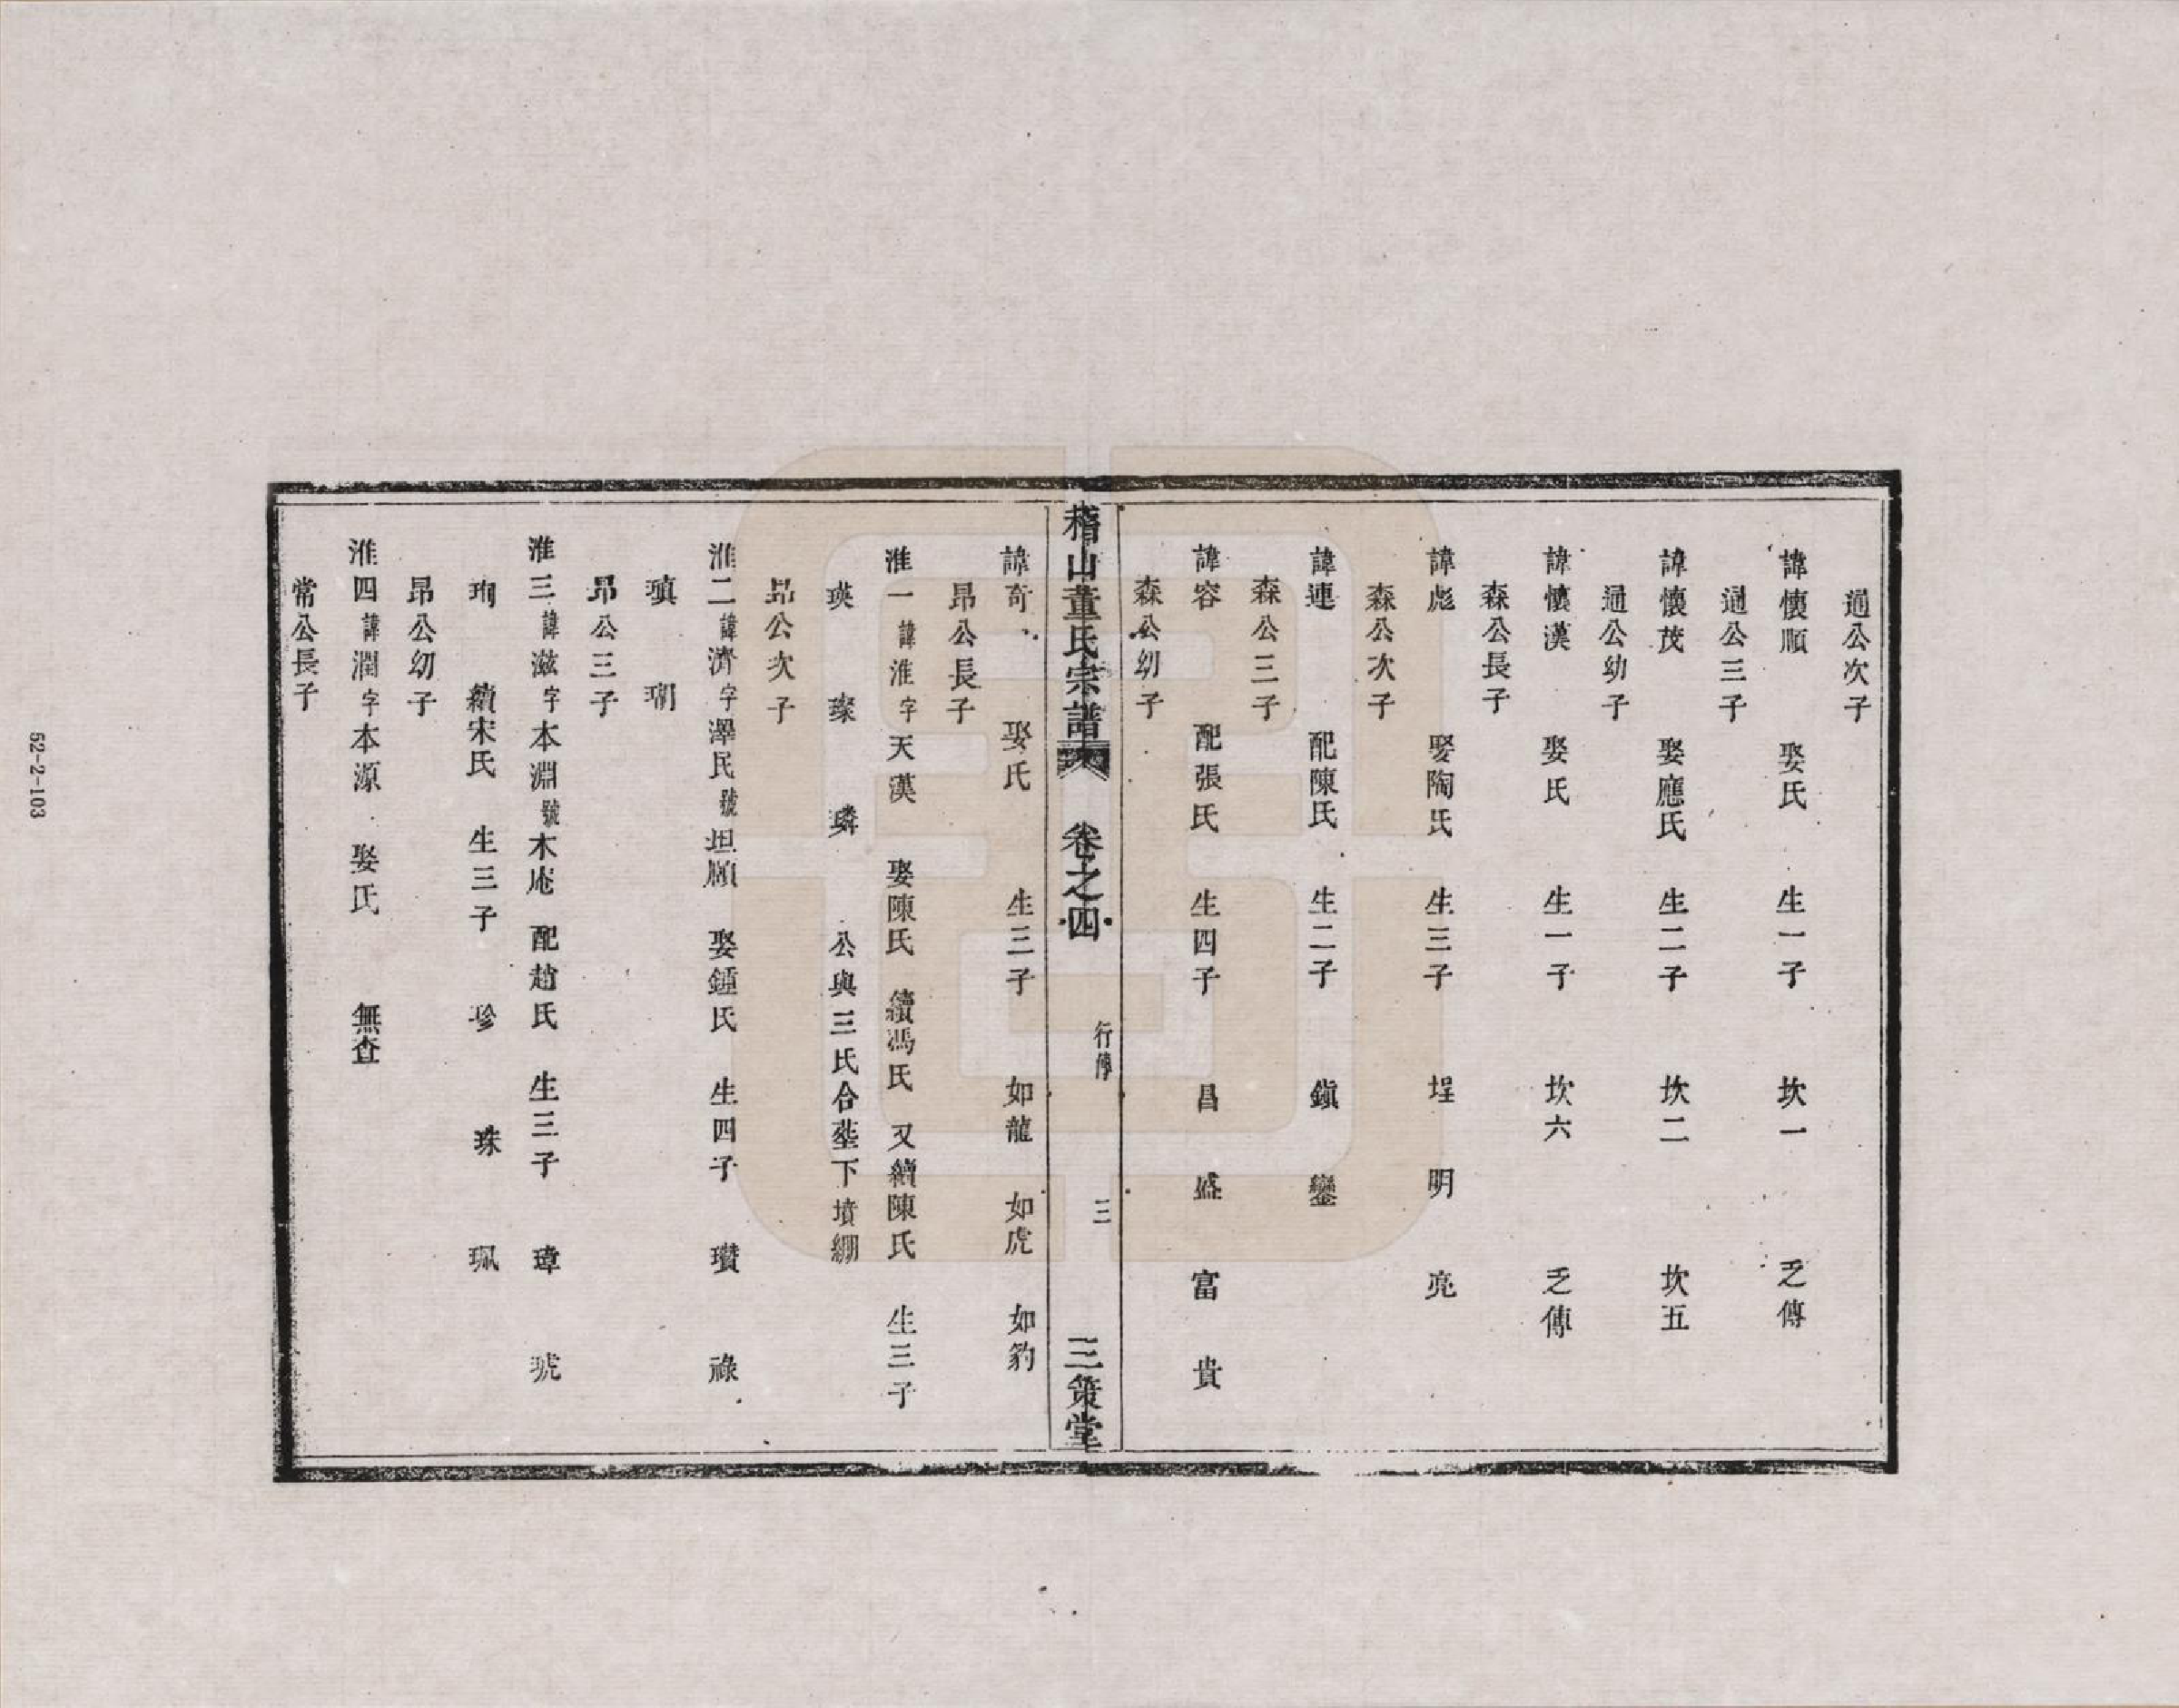 通公次子
諱懷順 娶氏 生一子 坎一 乏傳
通公三子
諱懷茂 娶應氏 生二子 坎二 坎五
通公幼子
諱懷漢 娶氏 生一子 坎六 乏傳
森公長子
諱彪 娶陶氏 生三子 埕 明 亮
森公次子
諱連 配陳氏 生二子 鎭 鑾
森公三子
諱容 配張氏 生四子 昌 盛 富 貴
森公幼子
稽山董氏宗譜 卷之四 行傳 三 三策堂
諱奇 娶氏 生三子 如龍 如虎 如豹
昂公長子
淮一諱淮字天漢 娶陳氏 續馮氏 又續陳氏 生三子
瑛 璨 璘 公與三氏合塟下墳綳
昂公次子
淮二諱濟字澤民號坦願 娶鍾氏 生四子 瓚 祿
瑱 瑚
昂公三子
淮三諱滋字本淵號木庵 配趙氏 生三子 璋 琥
珣 續宋氏 生三子 珍 珠 珮
昂公幼子
淮四諱潤字本源 娶氏 無查
常公長子
52-2-103